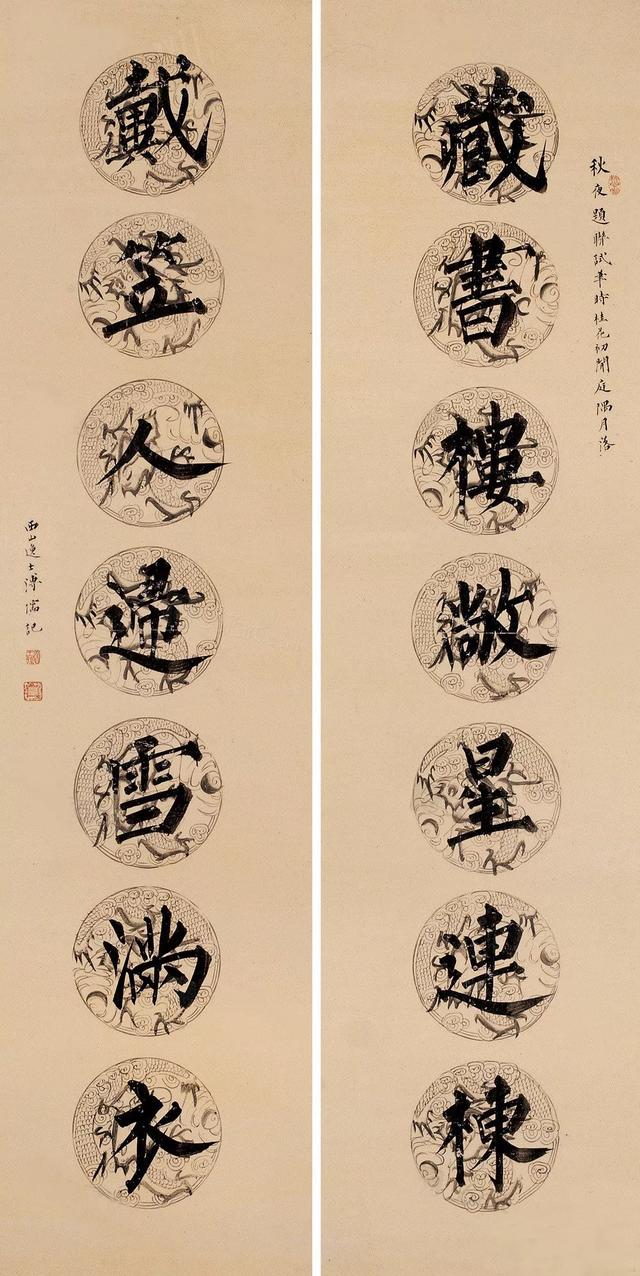 藏書樓敞星連棟
秋夜題聯試筆時桂花初開庭隅月落
戴笠人歸雪滿衣
西山逸士溥儒記